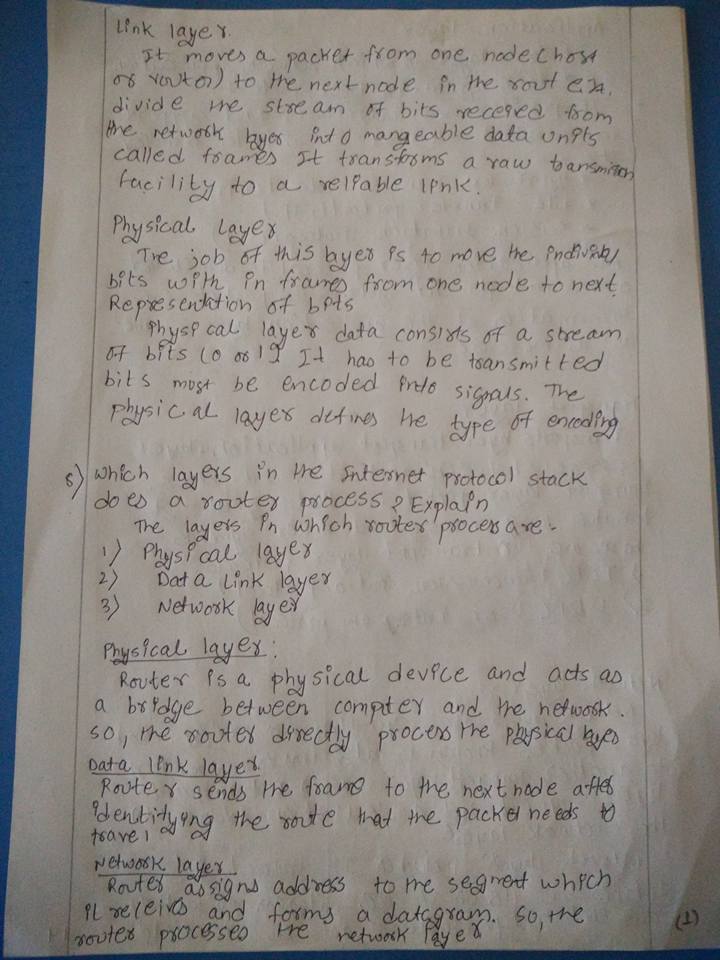 Link layer.
It moves a packet from one node (host
or router) to the next node in the rout ex.
divide the stream of bits receied from
the network layer into mangeable data units
called frames It transforms a raw transmission
facility to a reliable link.
Physical Layer
The job of this layer is to move the individual
bits with in frames from one node to next.
Representation of bits
Physical layer data consists of a stream
of bits (0 or 1) It has to be transmitted
bits must be encoded into signals. The
physical layer defines the type of encoding
5) Which layers in the Internet protocol stack
does a router process? Explain
The layers in which router process are -
1) Physical layer
2) Data Link layer
3) Network layer
Physical layer:
Router is a physical device and acts as
a bridge between computer and the network.
so, the router directly process the physical layer
Data link layer
Router sends the frame to the next node after
identifying the route that the packet needs to
travel
Network layer
Router assigns address to the segment which
it receives and forms a datagram. So, the
router processes the network layer
(2)